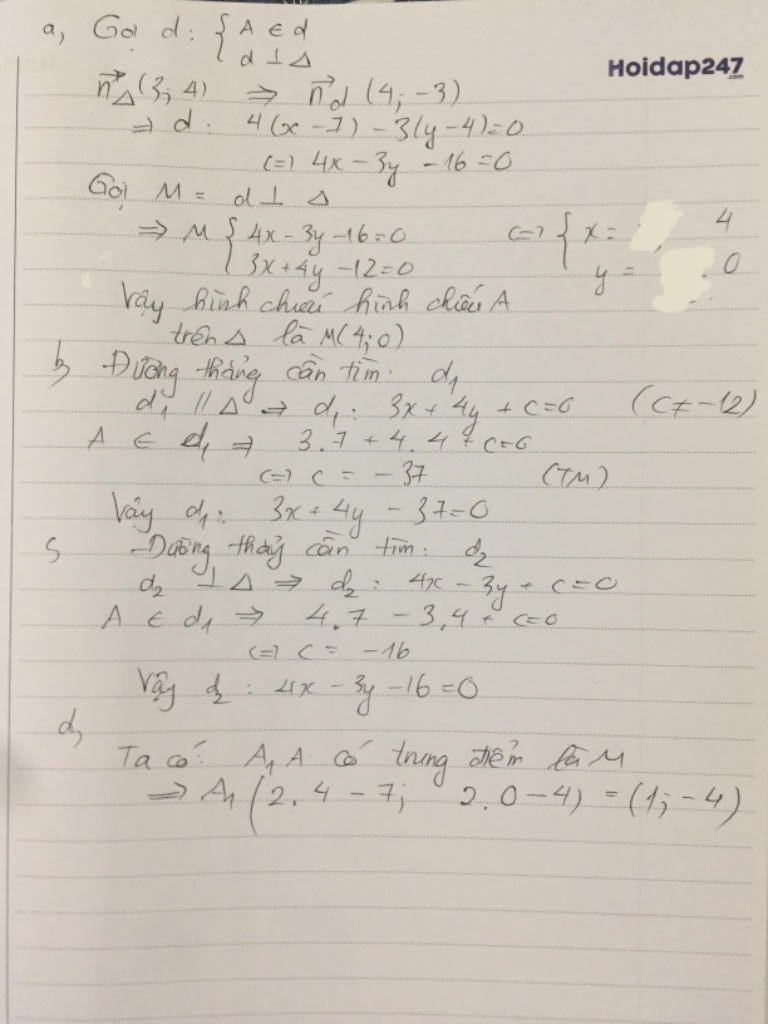 a, Gọi d: { A ∈ d
d ⊥ Δ
Hoidap247
.com
n⃗Δ (3; 4) ⇒ n⃗d (4; -3)
⇒ d: 4(x - 7) - 3(y - 4) = 0
(=) 4x - 3y - 16 = 0
Gọi M = d ⊥ Δ
⇒ M { 4x - 3y - 16 = 0 (=) { x = 4
3x + 4y - 12 = 0 y = 0
Vậy hình chiếu hình chiếu A
trên Δ là M(4; 0)
b, Đường thẳng cần tìm: d1
d1 // Δ ⇒ d1: 3x + 4y + c = 0 (c ≠ -12)
A ∈ d1 ⇒ 3.7 + 4.4 + c = 0
(=) c = -37 (TM)
Vậy d1: 3x + 4y - 37 = 0
- Đường thẳng cần tìm: d2
d2 ⊥ Δ ⇒ d2: 4x - 3y + c = 0
A ∈ d1 ⇒ 4.7 - 3.4 + c = 0
(=) c = -16
Vậy d2: 4x - 3y - 16 = 0
d,
Ta có: A1 A có trung điểm là M
⇒ A1 (2.4 - 7; 2.0 - 4) = (1; -4)